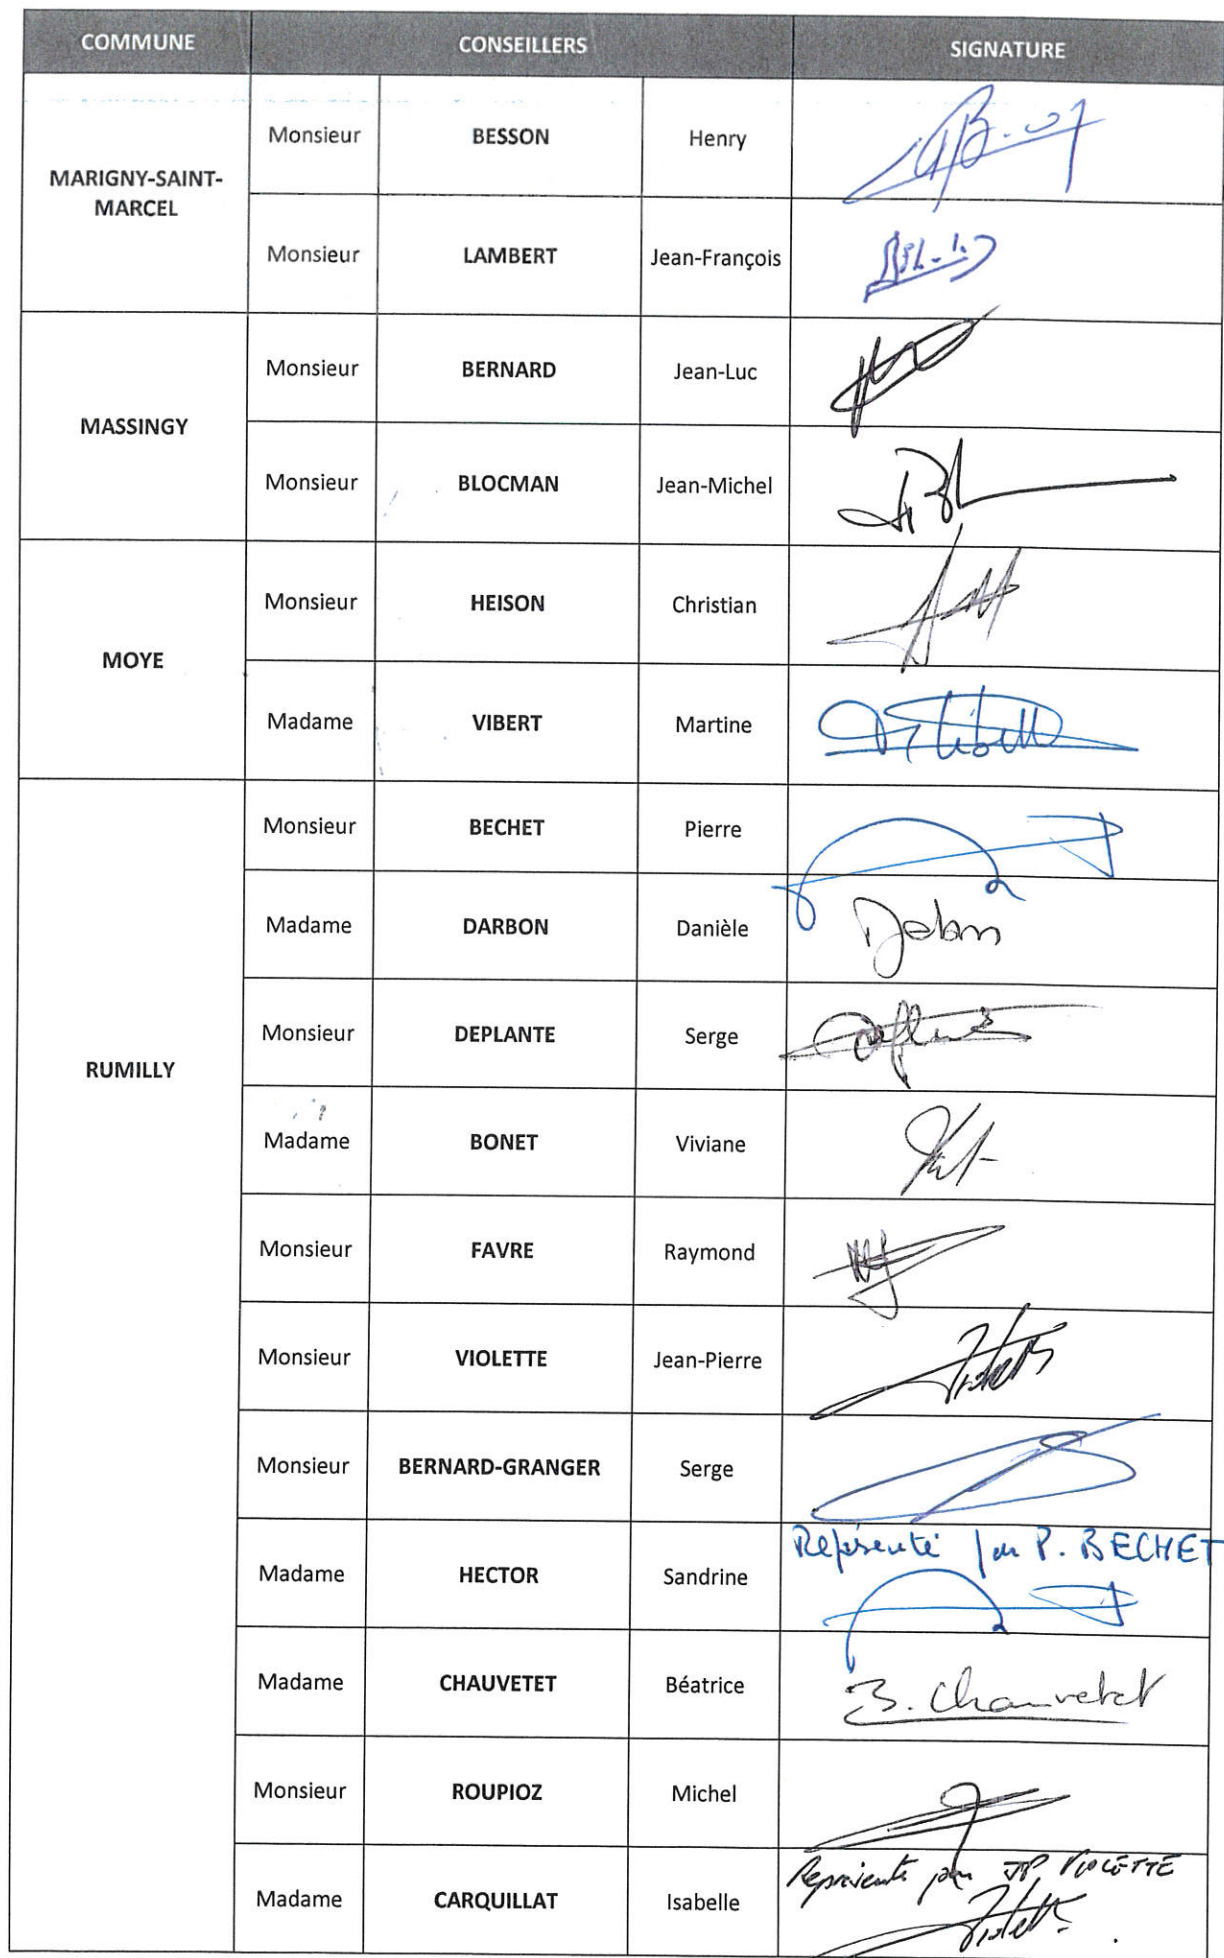 COMMUNE CONSEILLERS SIGNATURE
MARIGNY-SAINT-
MARCEL
Monsieur BESSON Henry
Monsieur LAMBERT Jean-François
MASSINGY
Monsieur BERNARD Jean-Luc
Monsieur BLOCMAN Jean-Michel
MOYE
Monsieur HEISON Christian
Madame VIBERT Martine
RUMILLY
Monsieur BECHET Pierre
Madame DARBON Danièle
Monsieur DEPLANTE Serge
Madame BONET Viviane
Monsieur FAVRE Raymond
Monsieur VIOLETTE Jean-Pierre
Monsieur BERNARD-GRANGER Serge
Représenté par P. BECHET
Madame HECTOR Sandrine
Madame CHAUVETET Béatrice B. Chauvetet
Monsieur ROUPIOZ Michel
Représenté par JP VIOLETTE
Madame CARQUILLAT Isabelle